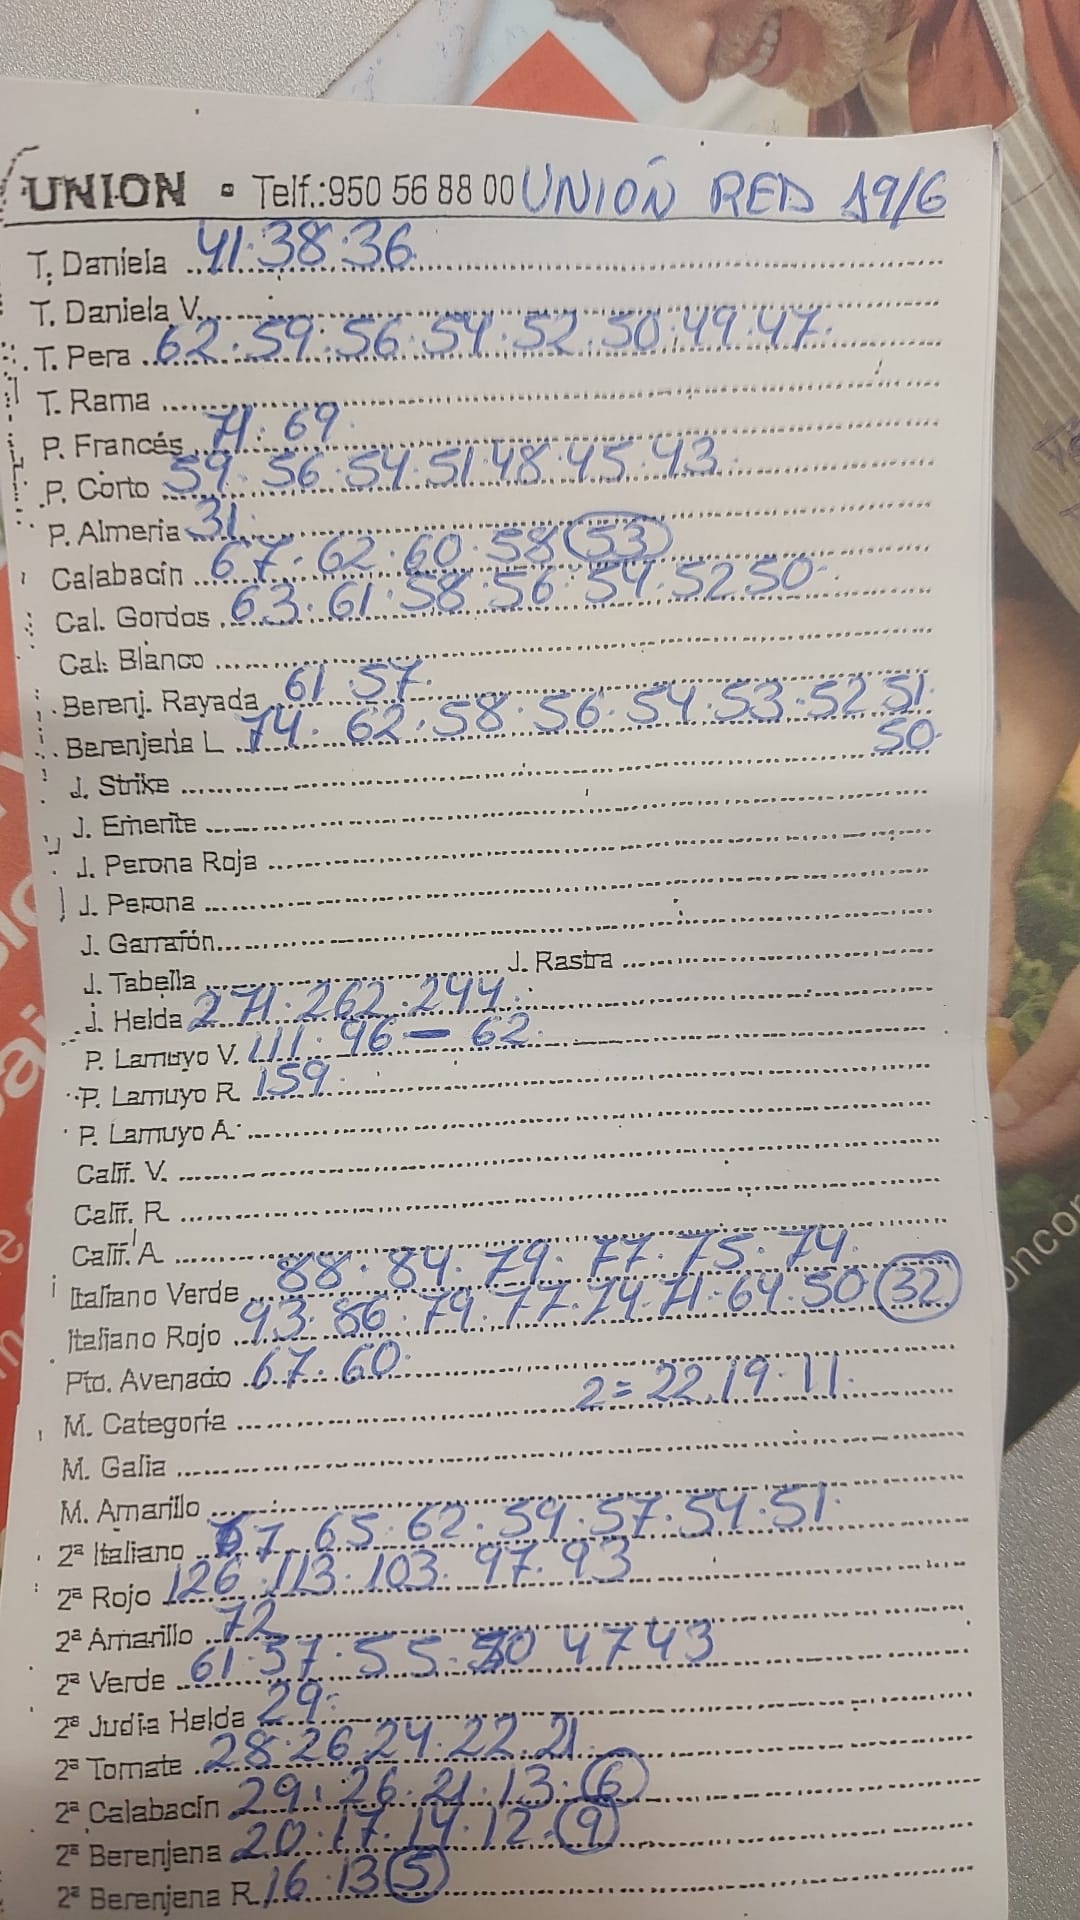 UNION · Telf.:950 56 88 00 UNIÓN RED 19/6
T. Daniela 41·38·36
T. Daniela V.
T. Pera 62·59·56·54·52·50·49·47·
T. Rama
P. Francés 71·69·
P. Corto 59·56·54·51·48·45·43·
P. Almeria 31·
Calabacín 67·62·60·58 53
Cal. Gordos 63·61·58·56·54·52 50·
Cal. Blanco
Berenj. Rayada 61·57·
Berenjena L 74·62·58·56·54·53·52 51·
50·
J. Strike
J. Emerite
J. Perona Roja
J. Perona
J. Garrafón
J. Tabella J. Rastra
J. Helda 271·262·244·
P. Lamuyo V. 111·96 — 62·
P. Lamuyo R. 159·
P. Lamuyo A.
Calif. V.
Calif. R
Calif. A
Italiano Verde 88·84·79·77·75·74·
Italiano Rojo 93·86·79·77·74·71·64·50 32
Pto. Avenado 67·60·
M. Categoría 2=22·19·11·
M. Galia
M. Amarillo
2ª Italiano 67·65·62·59·57·54·51·
2ª Rojo 126·113·103·97·93
2ª Amarillo 72
2ª Verde 61·57·55·50 47 43
2ª Judía Helda 29·
2ª Tomate 28·26 24·22·21·
2ª Calabacín 29·26·21·13·6
2ª Berenjena 20·17·14·12·9
2ª Berenjena R. 16·13 5